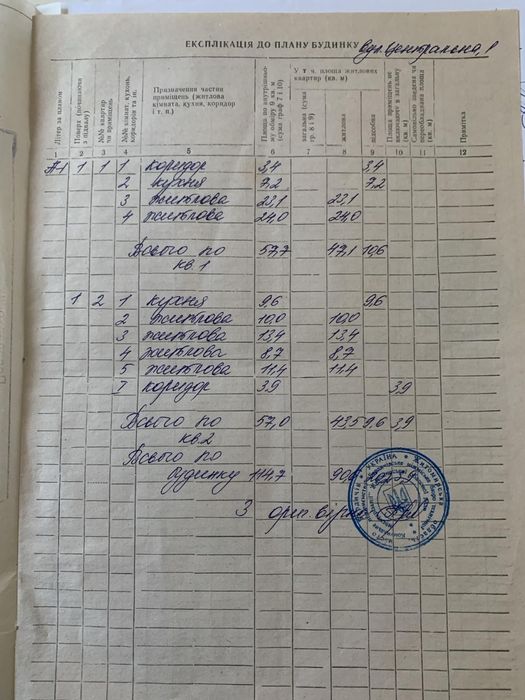 ЕКСПЛІКАЦІЯ ДО ПЛАНУ БУДИНКУ вул. Центральна, 1
Літер за планом
Поверх (починаючи з підвалу)
№№ квартир та приміщень
№№ кімнат, кухонь, коридорів та ін.
Призначення частин приміщень (житлова кімната, кухня, коридор і т. п.)
Площа по внутрішньому обміру 9 кв м (сума граф 7 і 10)
У т. ч. площа житлових квартир (кв. м)
загальна (сума гр. 8 і 9)
житлова
підсобна
(кв. м)
Самовільно зведена чи переобладнана площа (кв. м)
Примітка
1 2 3 4 5 6 7 8 9 10 11 12
А-1 1 1 1 коридор 3,4 3,4
2 кухня 7,2 7,2
3 житлова 23,1 23,1
4 житлова 24,0 24,0
Всього по 57,7 47,1 10,6
кв. 1
1 2 1 кухня 9,6 9,6
2 житлова 10,0 10,0
3 житлова 13,4 13,4
4 житлова 8,7 8,7
5 житлова 11,4 11,4
I коридор 3,9 3,9
Всього по 57,0 43,5 9,6 3,9
кв. 2
Всього по
будинку 114,7
З ориг. вірно
УКРАЇНА